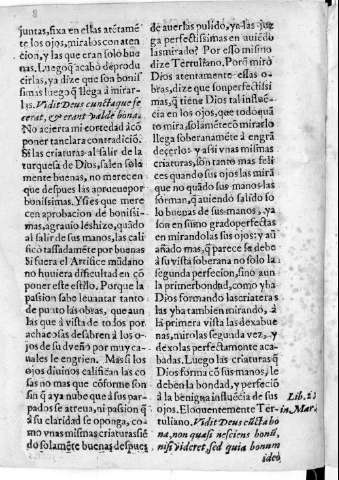 juntas, fixa en ellas atétamé
te los ojos, miralos con aten
cion, y las que eran solo bue
nas. Luego q̃ acabò de produ
cirlas, ya dize que son boniſ
simas luego q̃ llega à mirar-
las. Vidit Deus cunctaque fe
cerat, & erant valde bona.
No acierta mi cortedad à cõ
poner tan clara contradiciõ.
Si las criaturas al salir de la
turquesa de Dios, salen sola
mente buenas, no merecen
que despues las aprueue por
bonissimas. Y si es que mere
cen aprobacion de bonissi-
mas, agrauio les hizo, quãdo
al salir de sus manos, las cali
ficò tassadamẽte por buenas
Si fuera el Artifice mũdano
no huviera dificultad en cõ
poner este estilo. Porque la
passion sabe levantar tanto
de punto las obras, que aun
las que à vista de todos por
achacosas desabren à los o-
jos de su dueño por muy ca-
uales le engrien. Mas si los
ojos divinos califican las co
sas no mas que cõforme son
sin q̃ aya nube que à sus par-
pados se atreua, ni passion q̃
à su claridad se oponga, co-
mo vnas mismas criaturas siẽ
do solamẽte buenas despues
de auerlas pulido, ya las juz
ga perfectissimas en auiẽdo
las mirado? Por esso mismo
dize Tertuliano. Porq̃ mirò
Dios atentamente essas o-
bras, dize que son perfectissi
mas, q̃ tiene Dios tal influẽ-
cia en los ojos, que todo quã
to mira, solamẽte cõ mirarlo
llega soberanamẽte à engrã
decerlo: y assi vnas mismas
criaturas, son tanto mas feli
ces quando sus ojos las mirã
que no quãdo sus manos las
forman, q̃ auiendo salido so
lo buenas de sus manos, ya
son en sumo grado perfectas
en mirandolas sus ojos: y aũ
añado mas, q̃ parece se debe
à su vista soberana no solo la
segunda perfecion, sino aun
la primer bondad, como yba
Dios formando las criaturas
las yba tambien mirando, à
la primera vista las dexa bue
nas, mirolas segunda vez, y
dexolas perfectamente aca-
badas. Luego las criaturas q̃
Dios forma cõ sus manos, le
deben la bondad, y perfeciõ
à la benigna influẽcia de sus
ojos. Eloquentemente Ter-
tuliano. Vidit Deus cũcta bo
na, non quasi nesciens bonũ,
nisi videret, sed quia bonum
ideò
Lib. 2.
in Mar.